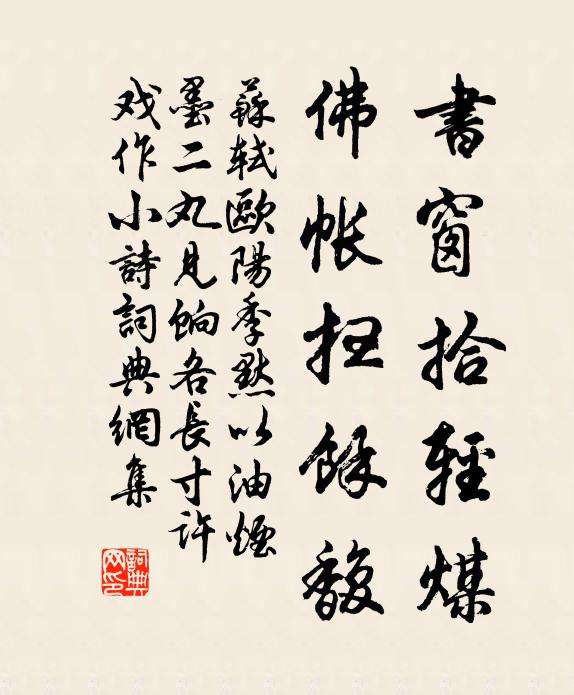 書窗拾輕煤
佛帳掃餘馥
蘇軾歐陽季默以油煙
墨二丸見餉各長寸許
戏作小詩詞典網集
詞典网印